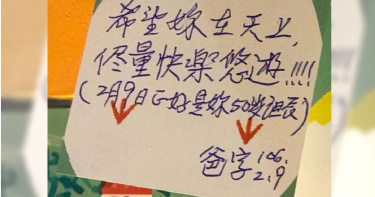 希望妳在天上,
儘量快樂悠遊!!!!
(2月9日正好是妳50歲誕辰)
爸字 106.
2.9